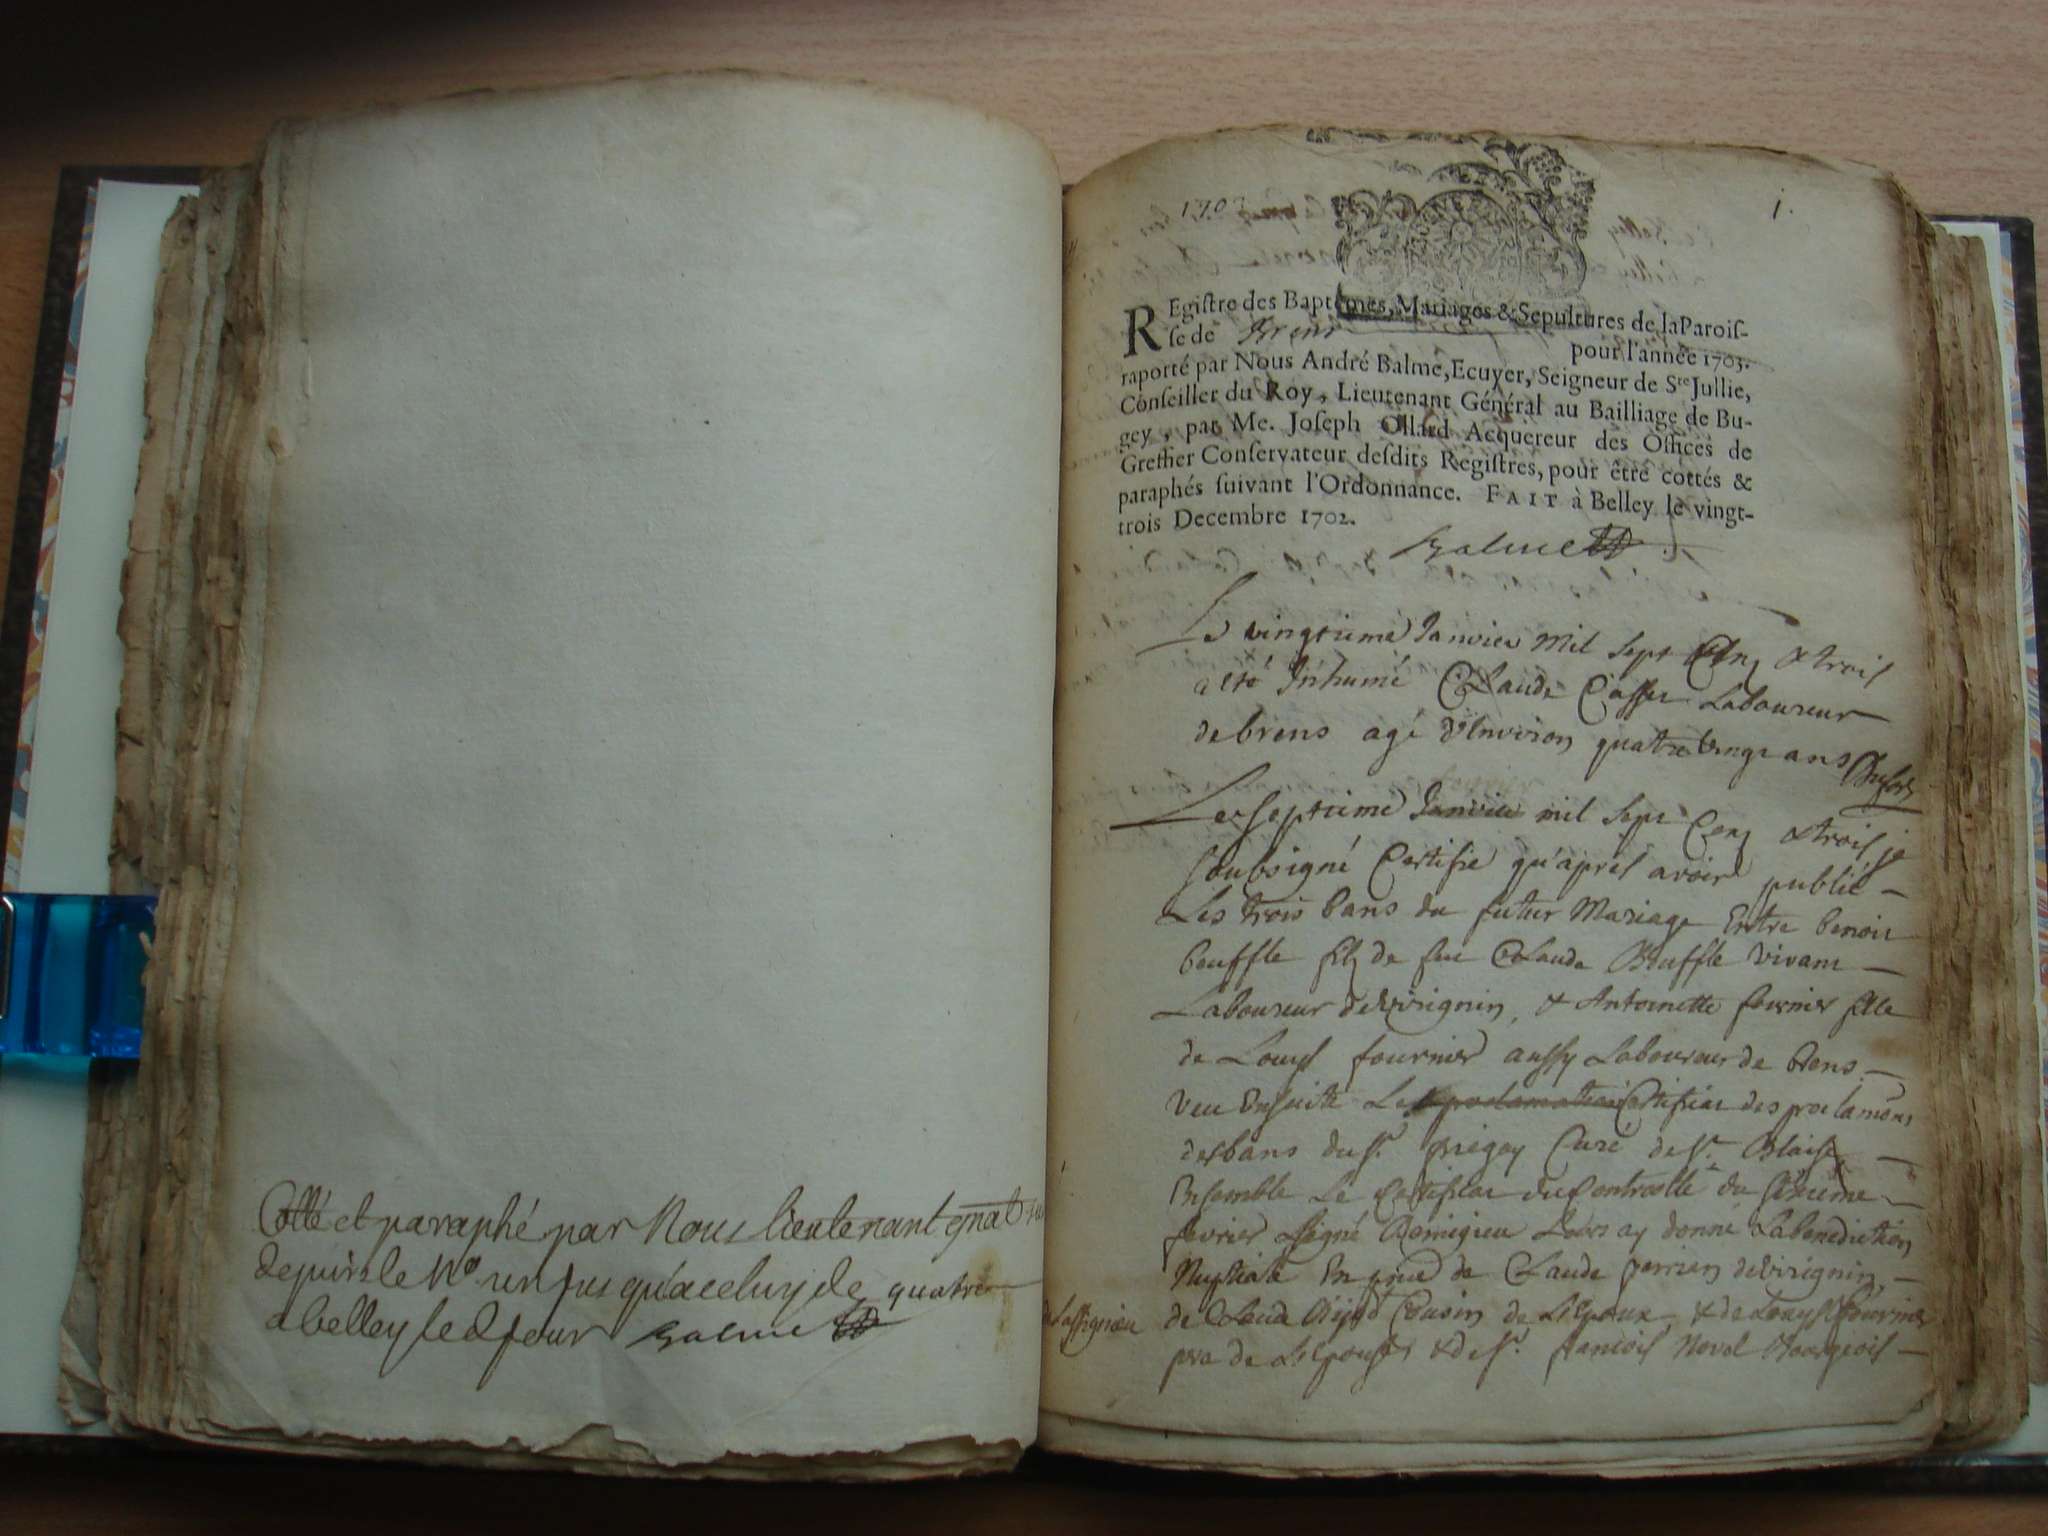 Cotté et paraphé par Nous lieutenant gnãl
depuis le No. un jusqu'a celuy de quatre
a belley led jour Balme
1703
1.
REgistre des Baptêmes, Mariages & Sepultures de la Parois-
se de Brens pour l'année 1703.
raporté par Nous André Balme, Ecuyer, Seigneur de Ste Jullie,
Conseiller du Roy, Lieutenant Général au Bailliage de Bu-
gey, par Me. Joseph Ollard Acquereur des Offices de
Greffier Conservateur desdits Registres, pour être cottés &
paraphés suivant l'Ordonnance. FAIT à Belley le vingt-
trois Decembre 1702.
Balme
Le vingtieme Janvier Mil Sept Cens & trois
a eté Inhumé Claude Laboureur
de brens agé d'Environ quatre vingt ans
fevrier
Le septieme Janvier mil Sept Cens & trois je
soubsigné Certifie qu'apres avoir publié
Les trois bans du futur Mariage Entre benoit
bouffle filz de feu Claude Bouffle vivant
Laboureur de Virignin, & Antoinette fournier fille
de Louys fournier aussy Laboureur de brens
Veu Ensuite Les proclamations Certificat des proclamõns
des bans du Sr. Curé de St. Blaise
Ensemble Le Certificat du Controolle du
fevrier Signé Leurs ay donné La benediction
Nuptiale En de Claude perrin de Virignin
de Claude Cusin de L'Epoux, & de Louys fournier
de Lassignieu
pere de L'Epouse & de Sr. francois Novel Bourgeois